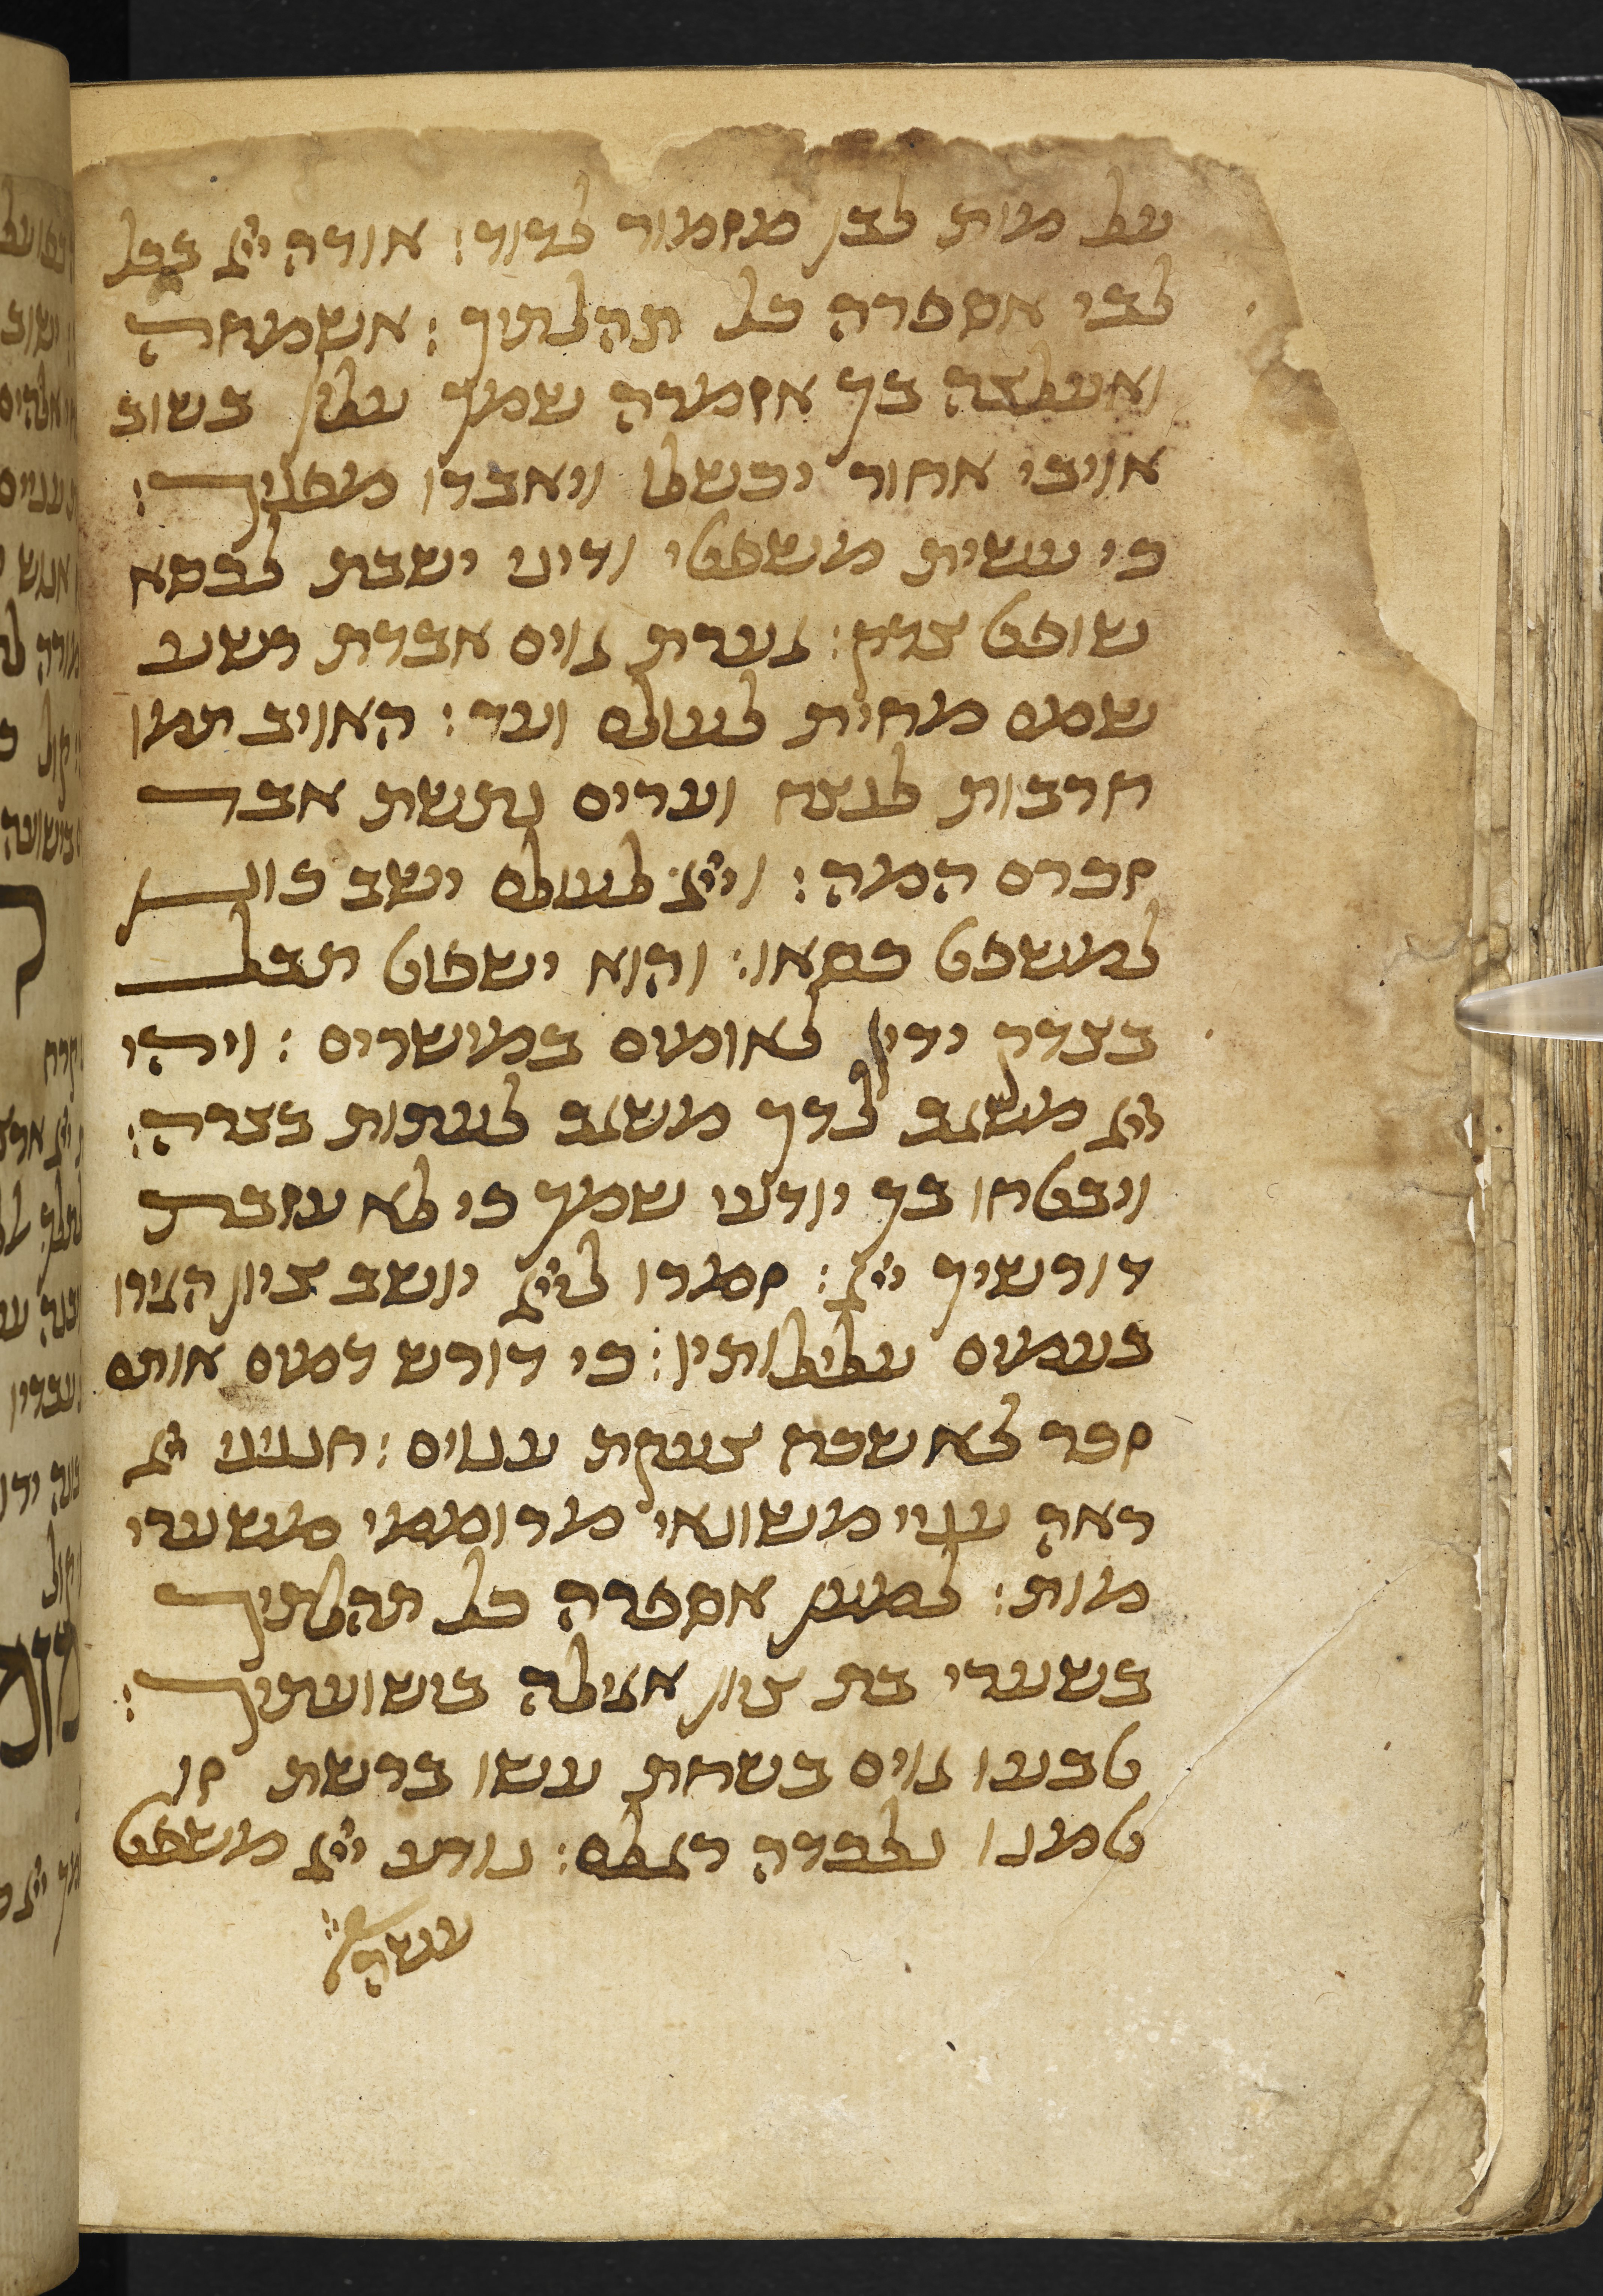 על מות לבן מזמור לדוד: אודה ייי בכל
לבי אספרה כל תהלתיך : אשמחה
ואעלצה בך אזמרה שמך עליון בשוב
אויבי אחור יכשלו ויאבדו מפניך :
כי עשית משפטי ודיני ישבת לכסא
שופט צדק: גערת גוים אבדת רשע
שמם מחית לעולם ועד : האויב תמו
חרבות לנצח וערים נתשת אבד
זכרם המה : וייי לעולם ישב כונן
למשפט כסאו: והוא ישפוט תבל
בצדק ידין לאומים במישרים : ויהי
ייי משגב לדך משגב לעתות בצרה:
ויבטחו בך יודעי שמך כי לא עזבת
דורשיך ייי : זמרו לייי יושב ציון הגידו
בעמים עלילותיו: כי דורש דמים אותם
זכר לא שכח צעקת ענוים : חנניני ייי
ראה עניי משונאי מרוממי משערי
מות : למען אספרה כל תהלתיך
בשערי בת ציון אגילה בישועתיך :
טבעו גוים בשחת עשו ברשת זו
טמנו נלכדה רגלם : נודע ייי משפט
עשה